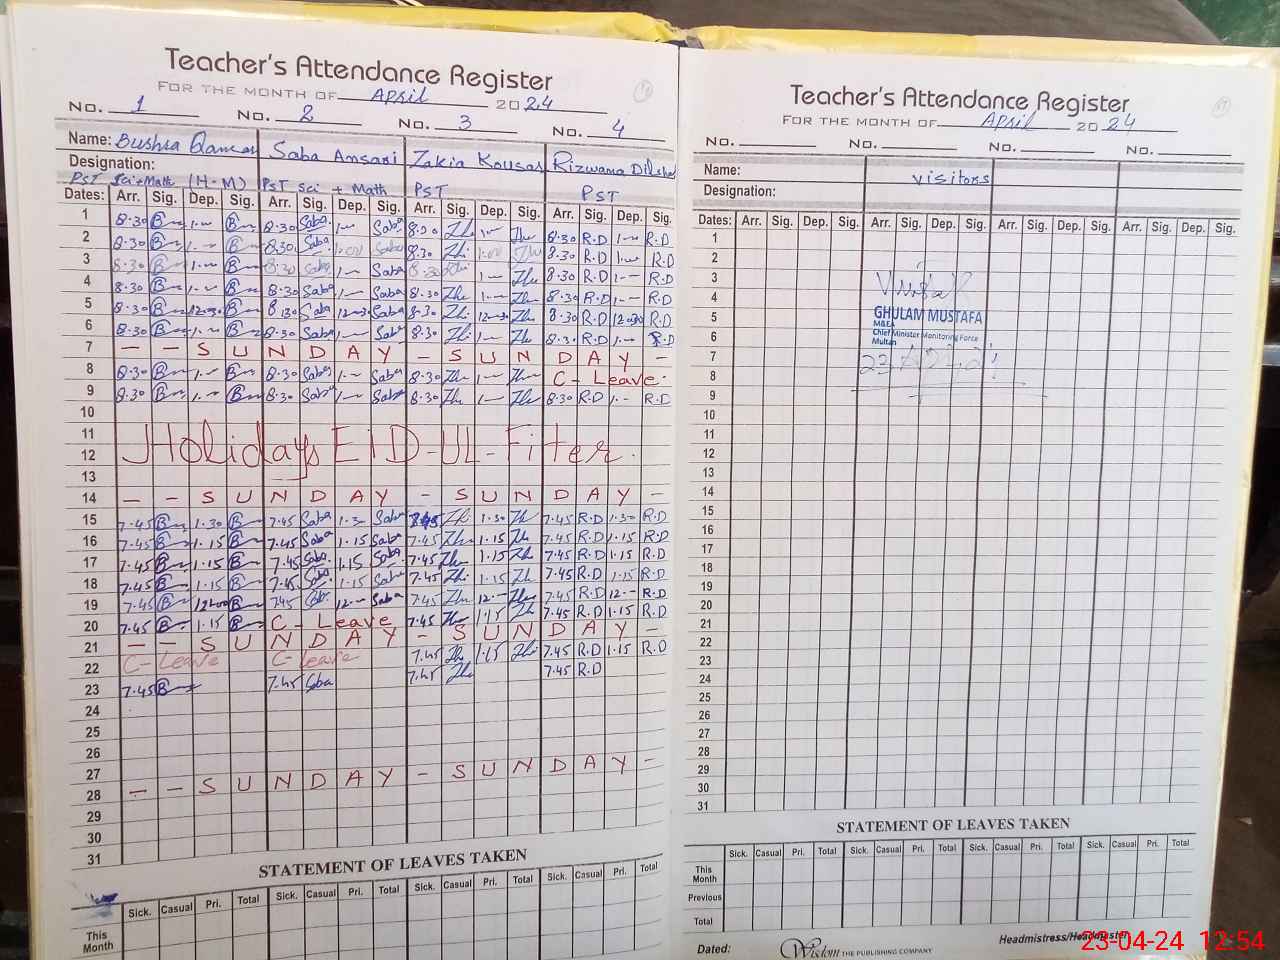 Teacher's Attendance Register
FOR THE MONTH OF April 2024
No. 1 No. 2 No. 3 No. 4
Name: Bushra Qamar Saba Ansari Zakia Kousar Rizwana Dilshad
Designation:
PST Sci+Math (H-M) PST Sci + Math PST PST
Dates: Arr. Sig. Dep. Sig. Arr. Sig. Dep. Sig. Arr. Sig. Dep. Sig. Arr. Sig. Dep. Sig.
1 8.30 1.— 8.30 Saba 1— Saba 8.30 1.— 8.30 R.D 1— R.D
2 8.30 1.— 8.30 Saba 1.00 Saba 8.30 1.00 8.30 R.D 1.00 R.D
3 8.30 1.— 8.30 Saba 1— Saba 8.30 1— 8.30 R.D 1-- R.D
4 8.30 1.— 8.30 Saba 1— Saba 8.30 1.— 8.30 R.D 1-- R.D
5 8.30 12.30 8.30 Saba 12-30 Saba 8.30 12-30 8.30 R.D 12.30 R.D
6 8.30 1.— 8.30 Saba 1— Saba 8.30 1— 8.30 R.D 1.— R.D
7 — S U N D A Y - S U N D A Y -
8 8.30 1.— 8.30 Saba 1.— Saba 8.30 1— C- Leave.
9 8.30 1.— 8.30 Saba 1— Saba 8.30 1— 8.30 R.D 1.- R.D
10
11 Holidays EID-UL-Fiter.
12
13
14 - - S U N D A Y - S U N D A Y -
15 7.45 1.30 7.45 Saba 1.3- Saba 7.45 1.30 7.45 R.D 1.30 R.D
16 7.45 1.15 7.45 Saba 1.15 Saba 7.45 1.15 7.45 R.D 1.15 R.D
17 7.45 1.15 7.45 Saba 1.15 Saba 7.45 1.15 7.45 R.D 1.15 R.D
18 7.45 1.15 7.45 Saba 1.15 Saba 7.45 1.15 7.45 R.D 1.15 R.D
19 7.45 12.00 7.45 Saba 12.— Saba 7.45 12.— 7.45 R.D 12.— R.D
20 7.45 1.15 C - Leave 7.45 1.15 7.45 R.D 1.15 R.D
21 - - S U N D A Y - S U N D A Y -
22 C- Leave C- leave 7.45 1.15 7.45 R.D 1.15 R.D
23 7.45 7.45 Saba 7.45 7.45 R.D
24
25
26
27
28 - - S U N D A Y - S U N D A Y -
29
30
31
STATEMENT OF LEAVES TAKEN
Sick. Casual Pri. Total Sick. Casual Pri. Total Sick. Casual Pri. Total Sick. Casual Pri. Total
This Month
Teacher's Attendance Register
FOR THE MONTH OF April 2024
No. No. No. No.
Name: visitors
Designation:
Dates: Arr. Sig. Dep. Sig. Arr. Sig. Dep. Sig. Arr. Sig. Dep. Sig. Arr. Sig. Dep. Sig.
1
2
3
4
5 GHULAM MUSTAFA
M&EA
6 Chief Minister Monitoring Force
Multan
7
8
9
10
11
12
13
14
15
16
17
18
19
20
21
22
23
24
25
26
27
28
29
30
31
STATEMENT OF LEAVES TAKEN
Sick. Casual Pri. Total Sick. Casual Pri. Total Sick. Casual Pri. Total Sick. Casual Pri. Total
This Month
Previous
Total
Dated: Wisdom THE PUBLISHING COMPANY Headmistress/Headmaster
23-04-24 12:54